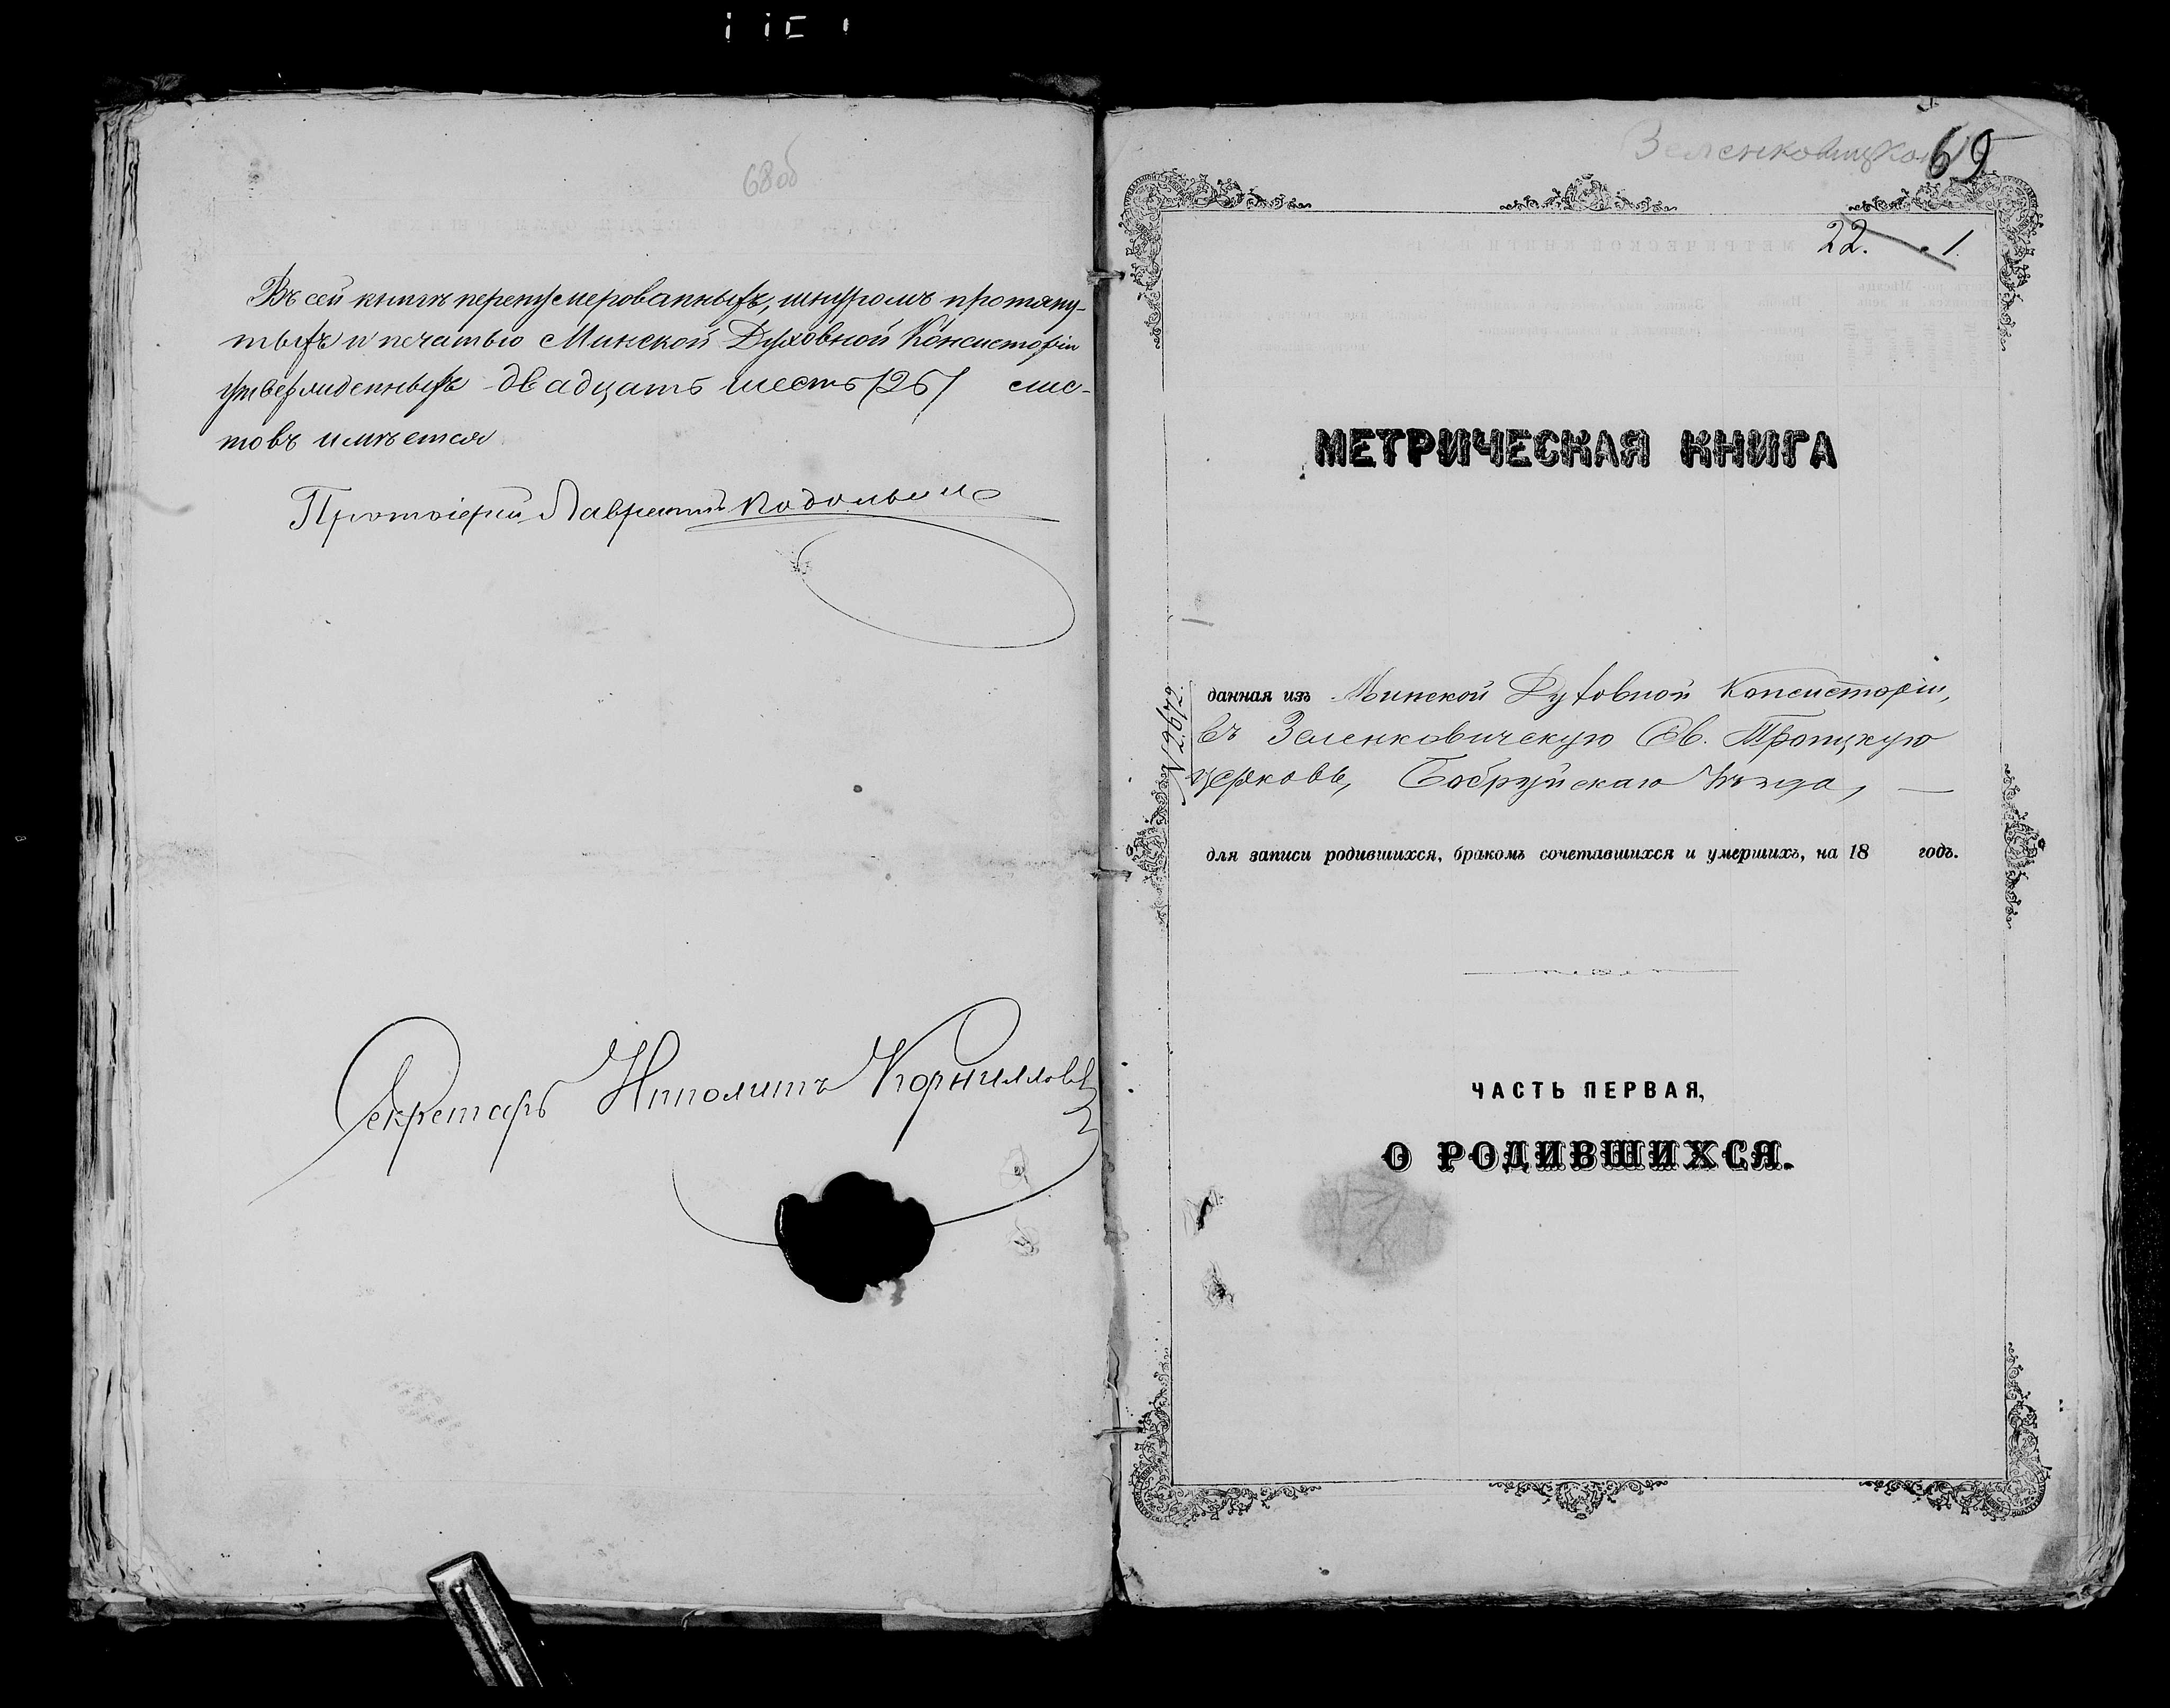 68об
Въ сей книгѣ перенумерованныхъ, шнуромъ протяну-
тыхъ и печатью Минской Духовной Консисторіи
утвержденныхъ двадцать шесть /26/ лис-
товъ имѣется
Протоіерей Лаврентій
Секретарь Ипполитъ Корнилловъ
Зеленковицкой
69
22. 1.
МЕТРИЧЕСКАЯ КНИГА
N 2672.
данная изъ Минской Духовной Консисторіи,
въ Зеленковичскую Св. Троицкую
церковь, Бобруйскаго уѣзда,
для записи родившихся, бракомъ сочетавшихся и умершихъ, на 18 годъ.
ЧАСТЬ ПЕРВАЯ,
О РОДИВШИХСЯ.